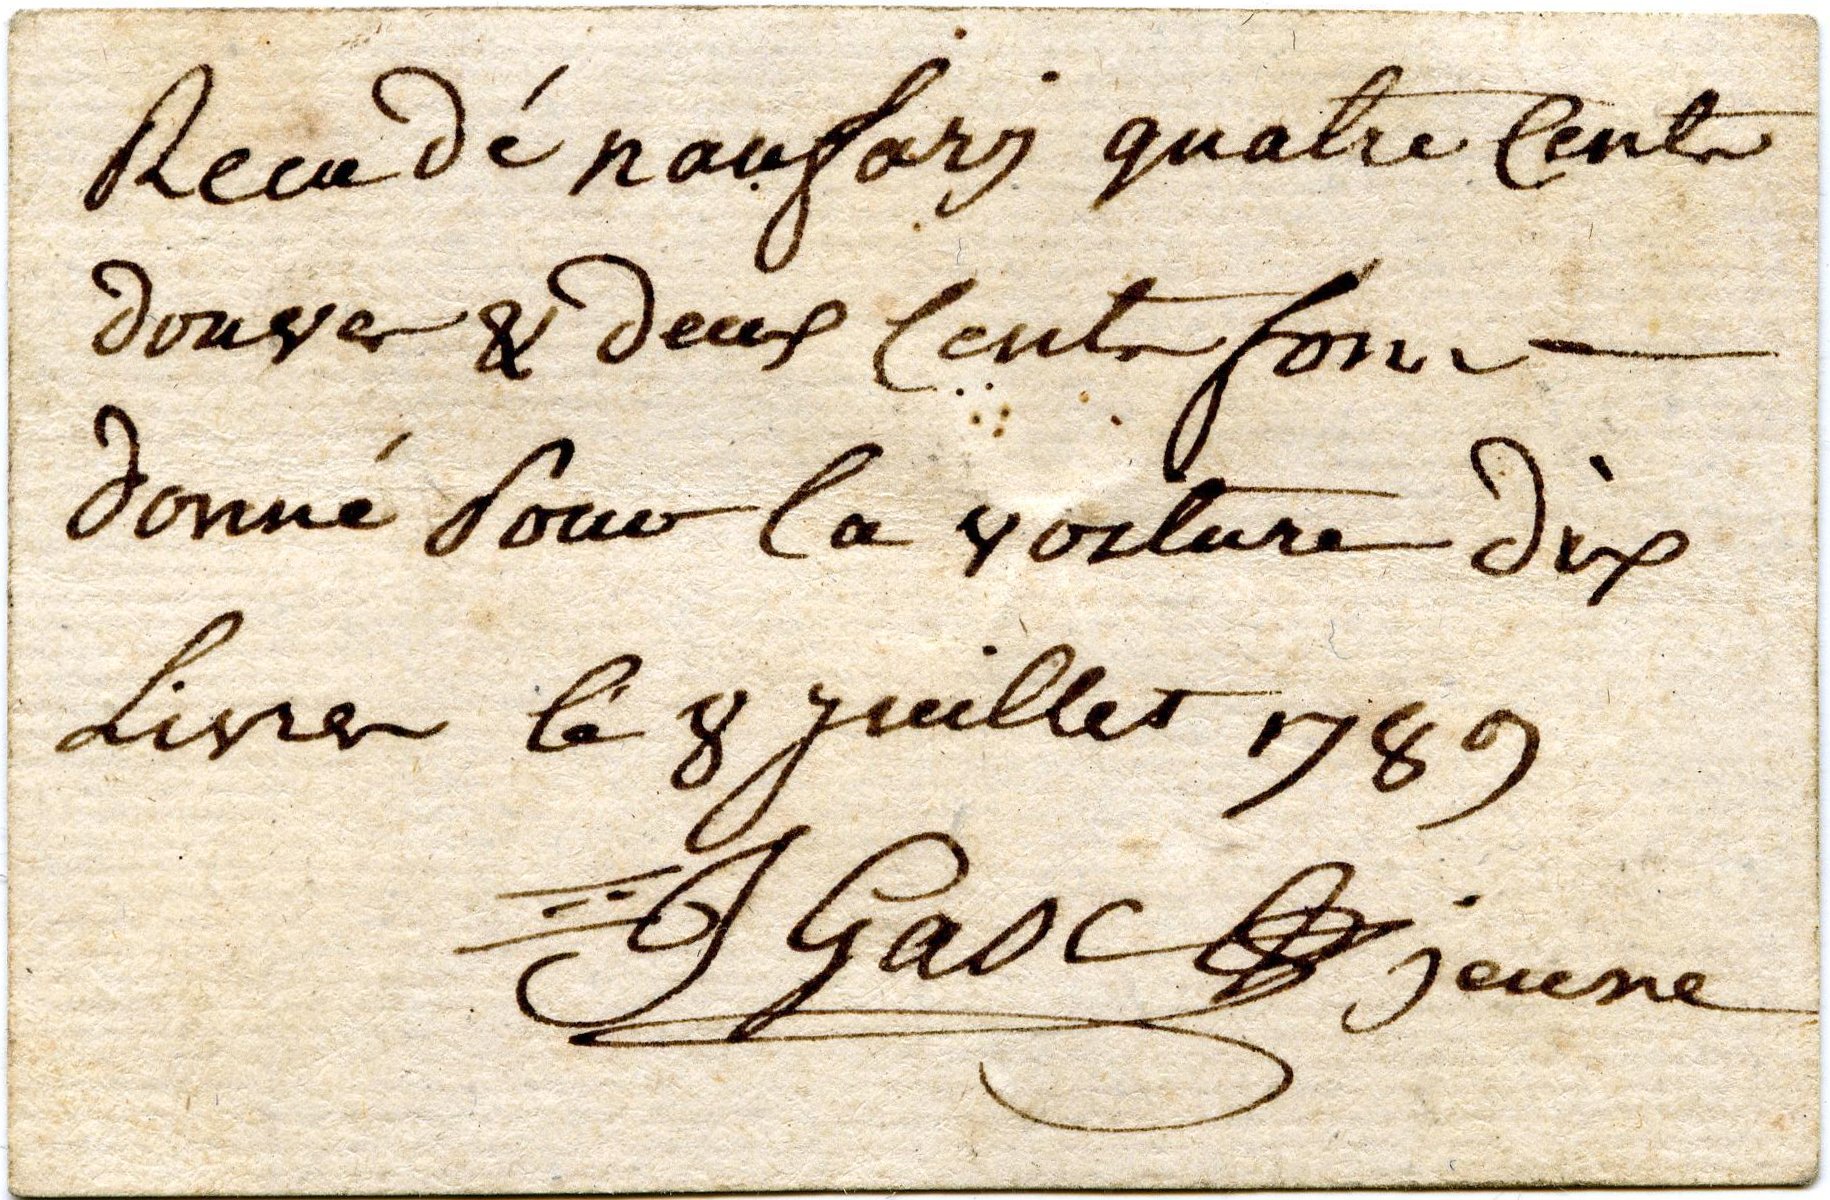 Recu dé naufary quatre Cents
douves & deux Cents fons
donné Pour la voiture dix
Livres lé 8 juillet 1789
J Gasc jeune